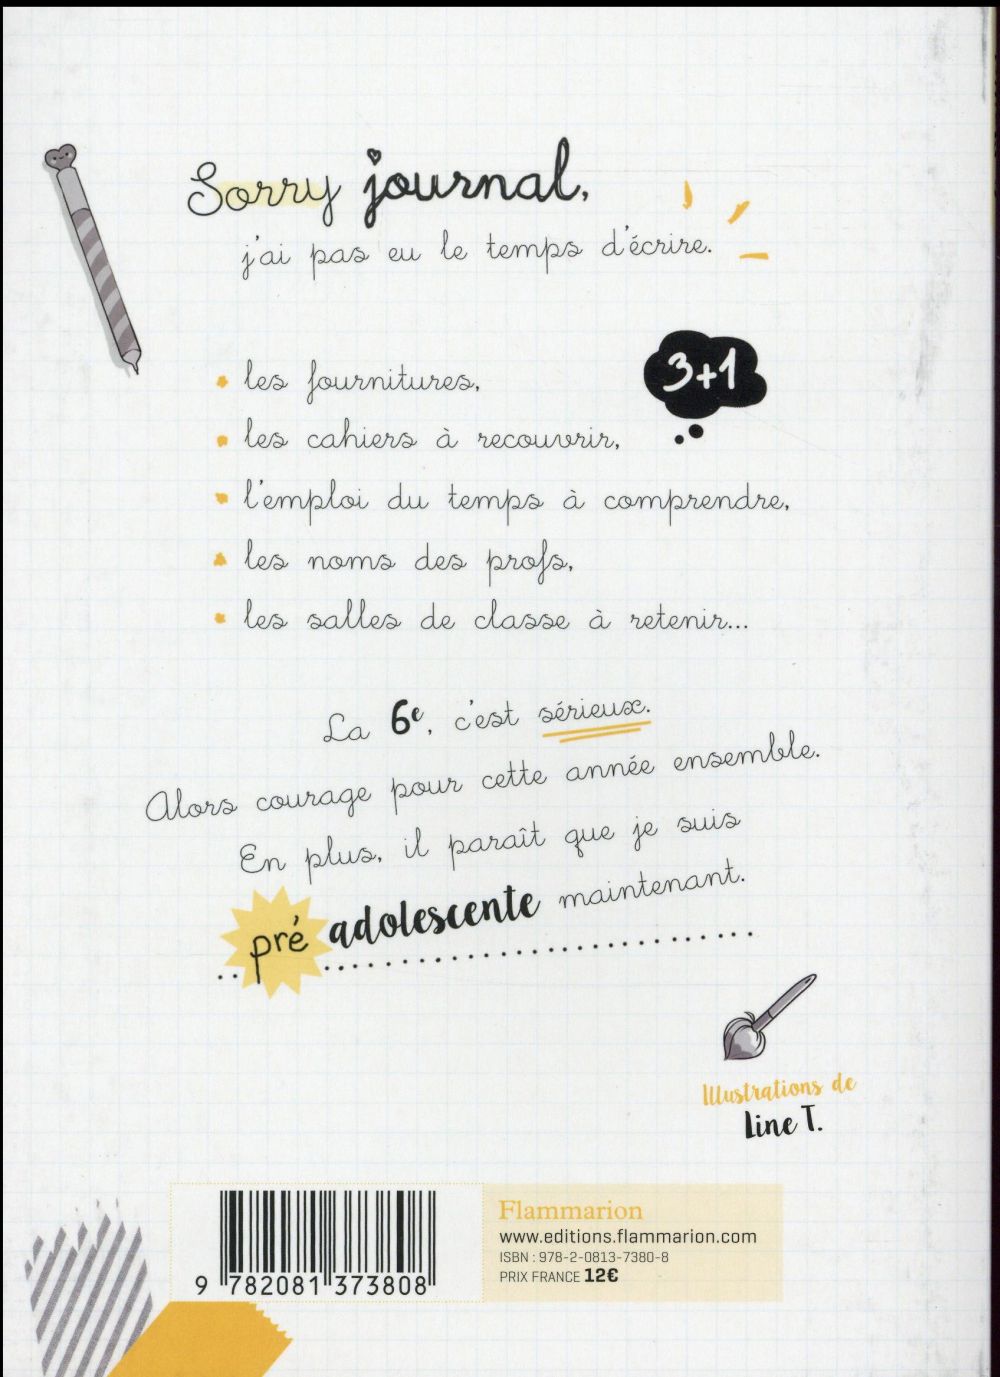 Sorry journal,
j'ai pas eu le temps d'écrire.
3+1
les fournitures,
les cahiers à recouvrir,
l'emploi du temps à comprendre,
les noms des profs,
les salles de classe à retenir...
La 6e, c'est sérieux.
Alors courage pour cette année ensemble.
En plus, il paraît que je suis
pré adolescente maintenant.
Illustrations de
Line T.
Flammarion
www.editions.flammarion.com
ISBN : 978-2-0813-7380-8
PRIX FRANCE 12€
9 782081 373808